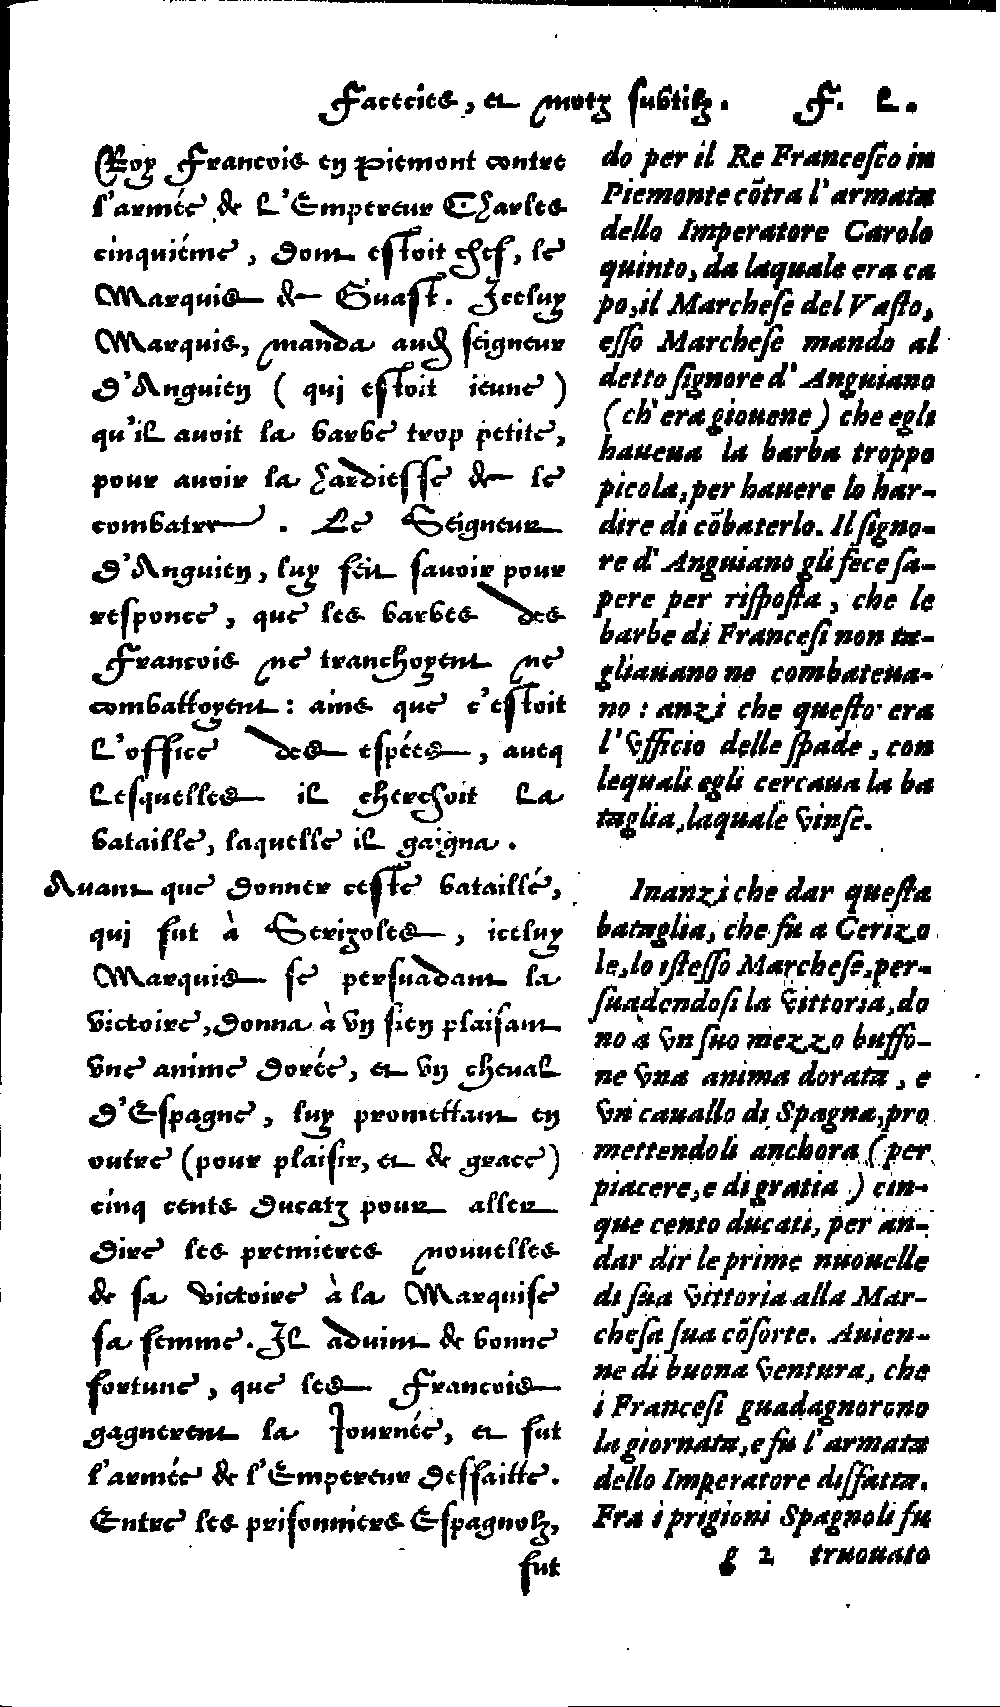 Facecies, et motz subtilz. F. L.
Roy Francois en Piemont contre
l'armée de L'Empereur Charles
cinquiéme, dont estoit chef, le
Marquis de Guast. Iceluy
Marquis, manda audit seigneur
d'Anguien ( qui estoit ieune )
qu'il auoit la barbe trop petite,
pour auoir la hardiesse de le
combatre. Le Seigneur
d'Anguien, luy feit sauoir pour
responce, que les barbes des
Francois ne tranchoyent ne
combattoyent : ains que c'estoit
L'office des espées, aueq
Lesquelles il cherchoit La
bataille, laquelle il gaigna.
Auant que donner ceste bataille,
qui fut à Serizoles, iceluy
Marquis se persuadant la
victoire, donna à vn sien plaisant
vne anime dorée, et vn cheual
d'Espagne, luy promettant en
outre (pour plaisir, et de grace)
cinq cents ducatz pour aller
dire les premieres nouuelles
de sa victoire à la Marquise
sa femme. Il aduint de bonne
fortune, que les Francois
gagnerent la Iournée, et fut
l'armée de l'Empereur deffaitte.
Entre les prisonniers Espagnolz,
fut
do per il Re Francesco in
Piemonte cõtra l'armata
dello Imperatore Carolo
quinto, da laquale era ca
po, il Marchese del Vasto,
esso Marchese mando al
detto signore d'Anguiano
(ch'era giouene) che egli
haueua la barba troppo
picola, per hauere lo har-
dire di cõbaterlo. Il signo-
re d'Anguiano gli fece sa-
pere per risposta, che le
barbe di Francesi non ta-
gliauano ne combateua-
no : anzi che questo era
l'vfficio delle spade, con
lequali egli cercaua la ba
taglia, laquale vinse.
Inanzi che dar questa
bataglia, che fu a Cerizo
le, lo istesso Marchese, per-
suadendosi la vittoria, do
no a vn suo mezzo buffo-
ne vna anima dorata, e
vn cauallo di Spagna, pro
mettendoli anchora (per
piacere, e di gratia ) cin-
que cento ducati, per an-
dar dir le prime nuouelle
di sua vittoria alla Mar-
chesa sua cõsorte. Auien-
ne di buona ventura, che
i Francesi guadagnorono
la giornata, e fu l'armata
dello Imperatore disfatta.
Fra i prigioni Spagnoli fu
g 2 truouato